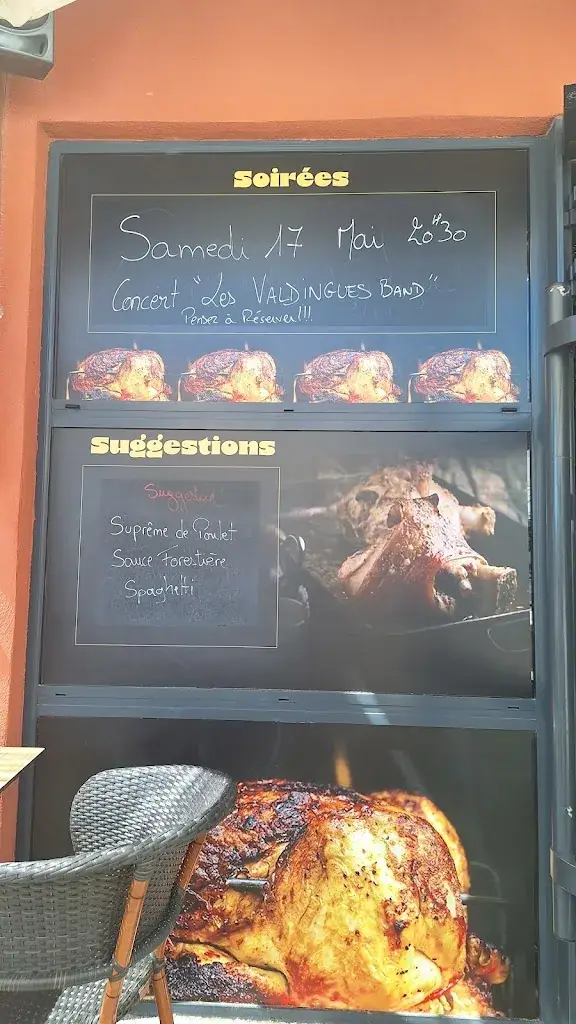 Soirées
Samedi 17 Mai 20H30
Concert "Les VALDINGUES BAND"
Pensez à Réserver!!!
Suggestions
Suggestion
Suprême de Poulet
Sauce Forestière
Spaghetti